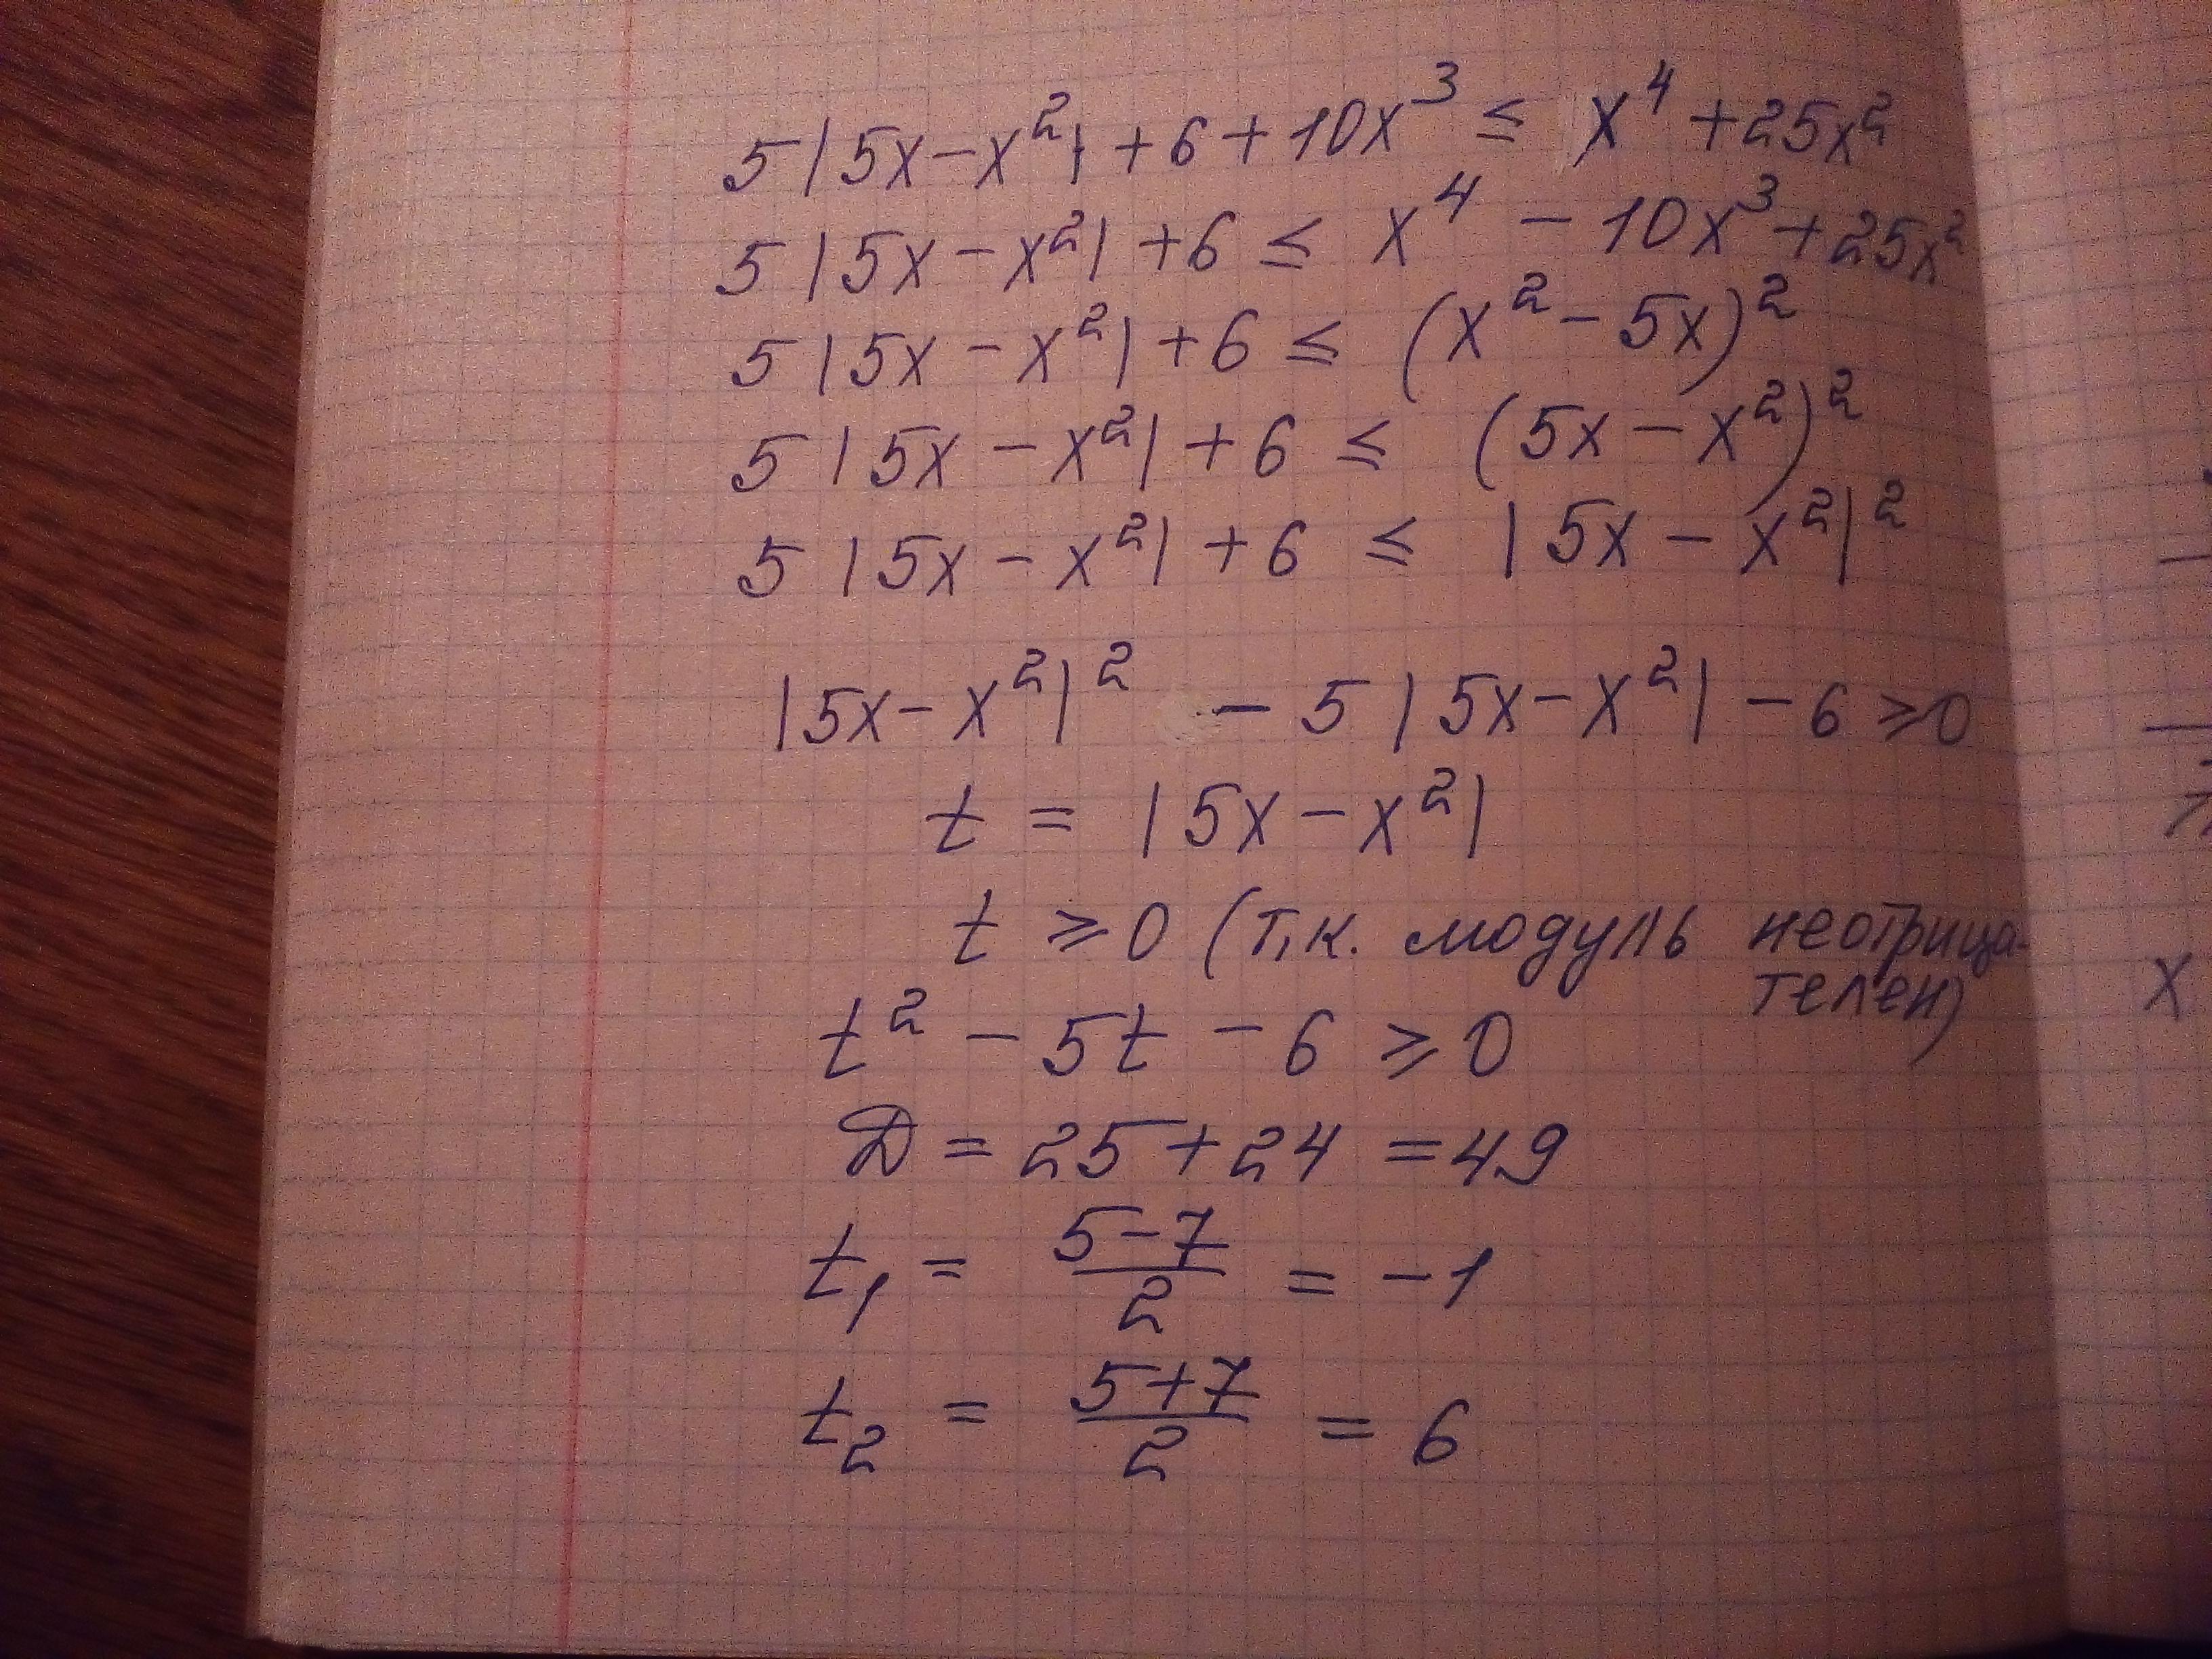 5|5x-x²|+6+10x³ ≤ x⁴+25x²
5|5x-x²|+6 ≤ x⁴-10x³+25x²
5|5x-x²|+6 ≤ (x²-5x)²
5|5x-x²|+6 ≤ (5x-x²)²
5|5x-x²|+6 ≤ |5x-x²|²
|5x-x²|² - 5|5x-x²| - 6 ≥ 0
t = |5x-x²|
t ≥ 0 (т.к. модуль неотрица-
телен)
t² - 5t - 6 ≥ 0
D = 25+24 = 49
t₁ = (5-7)/2 = -1
t₂ = (5+7)/2 = 6